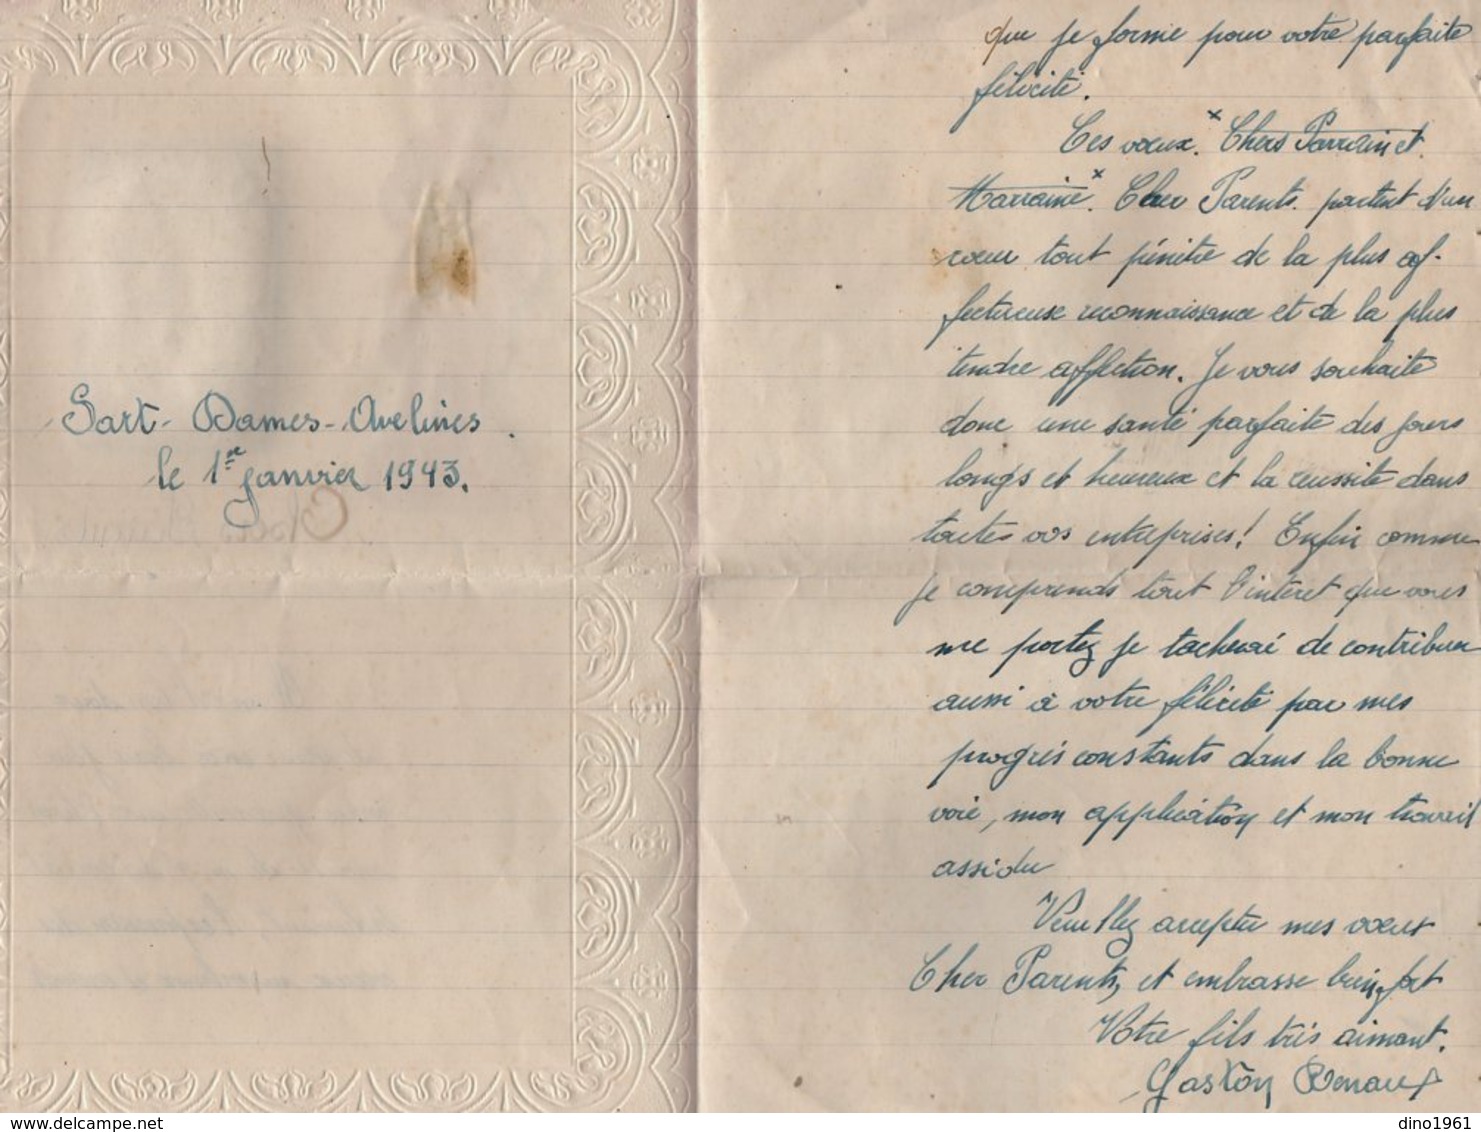 Sart-Dames-Avelines.
le 1er janvier 1943.
que je forme pour votre parfaite
félicité.
Ces vœux. x Chers Parrain et
Marraine x. Cher Parents. partent d'un
cœur tout pénétré de la plus af-
fectueuse reconnaissance et de la plus
tendre affection. Je vous souhaite
donc une santé parfaite des jours
longs et heureux et la reussite dans
toutes vos entreprises! Enfin comme
je comprends tout l'interet que vous
me portez je tacherai de contribuer
aussi à votre félicité par mes
progrès constants dans la bonne
voie, mon application et mon travail
assidu
Veuillez accepter mes vœux
Cher Parents, et embrasse bien fort
Votre fils très aimant.
Gaston Renaux
dino1961